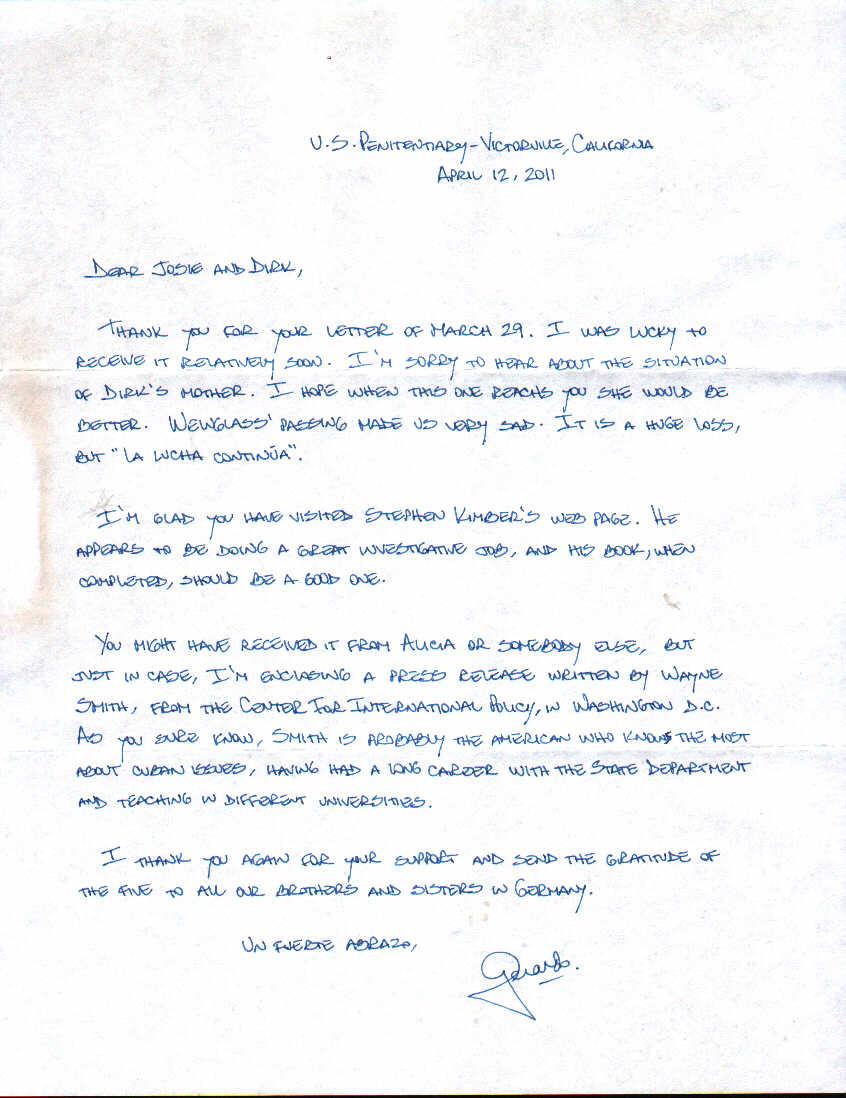 U.S. PENITENTIARY - VICTORVILLE, CALIFORNIA
APRIL 12, 2011
DEAR JOSIE AND DIRK,
THANK YOU FOR YOUR LETTER OF MARCH 29. I WAS LUCKY TO
RECEIVE IT RELATIVELY SOON. I'M SORRY TO HEAR ABOUT THE SITUATION
OF DIRK'S MOTHER. I HOPE WHEN THIS ONE REACHS YOU SHE WOULD BE
BETTER. WEINGLASS' PASSING MADE US VERY SAD. IT IS A HUGE LOSS,
BUT "LA LUCHA CONTINÚA".
I'M GLAD YOU HAVE VISITED STEPHEN KIMBER'S WEB PAGE. HE
APPEARS TO BE DOING A GREAT INVESTIGATIVE JOB, AND HIS BOOK, WHEN
COMPLETED, SHOULD BE A GOOD ONE.
YOU MIGHT HAVE RECEIVED IT FROM ALICIA OR SOMEBODY ELSE, BUT
JUST IN CASE, I'M ENCLOSING A PRESS RELEASE WRITTEN BY WAYNE
SMITH, FROM THE CENTER FOR INTERNATIONAL POLICY, IN WASHINGTON D.C.
AS YOU SURE KNOW, SMITH IS PROBABLY THE AMERICAN WHO KNOWS THE MOST
ABOUT CUBAN ISSUES, HAVING HAD A LONG CAREER WITH THE STATE DEPARTMENT
AND TEACHING IN DIFFERENT UNIVERSITIES.
I THANK YOU AGAIN FOR YOUR SUPPORT AND SEND THE GRATITUDE OF
THE FIVE TO ALL OUR BROTHERS AND SISTERS IN GERMANY.
UN FUERTE ABRAZO,
Gerardo.